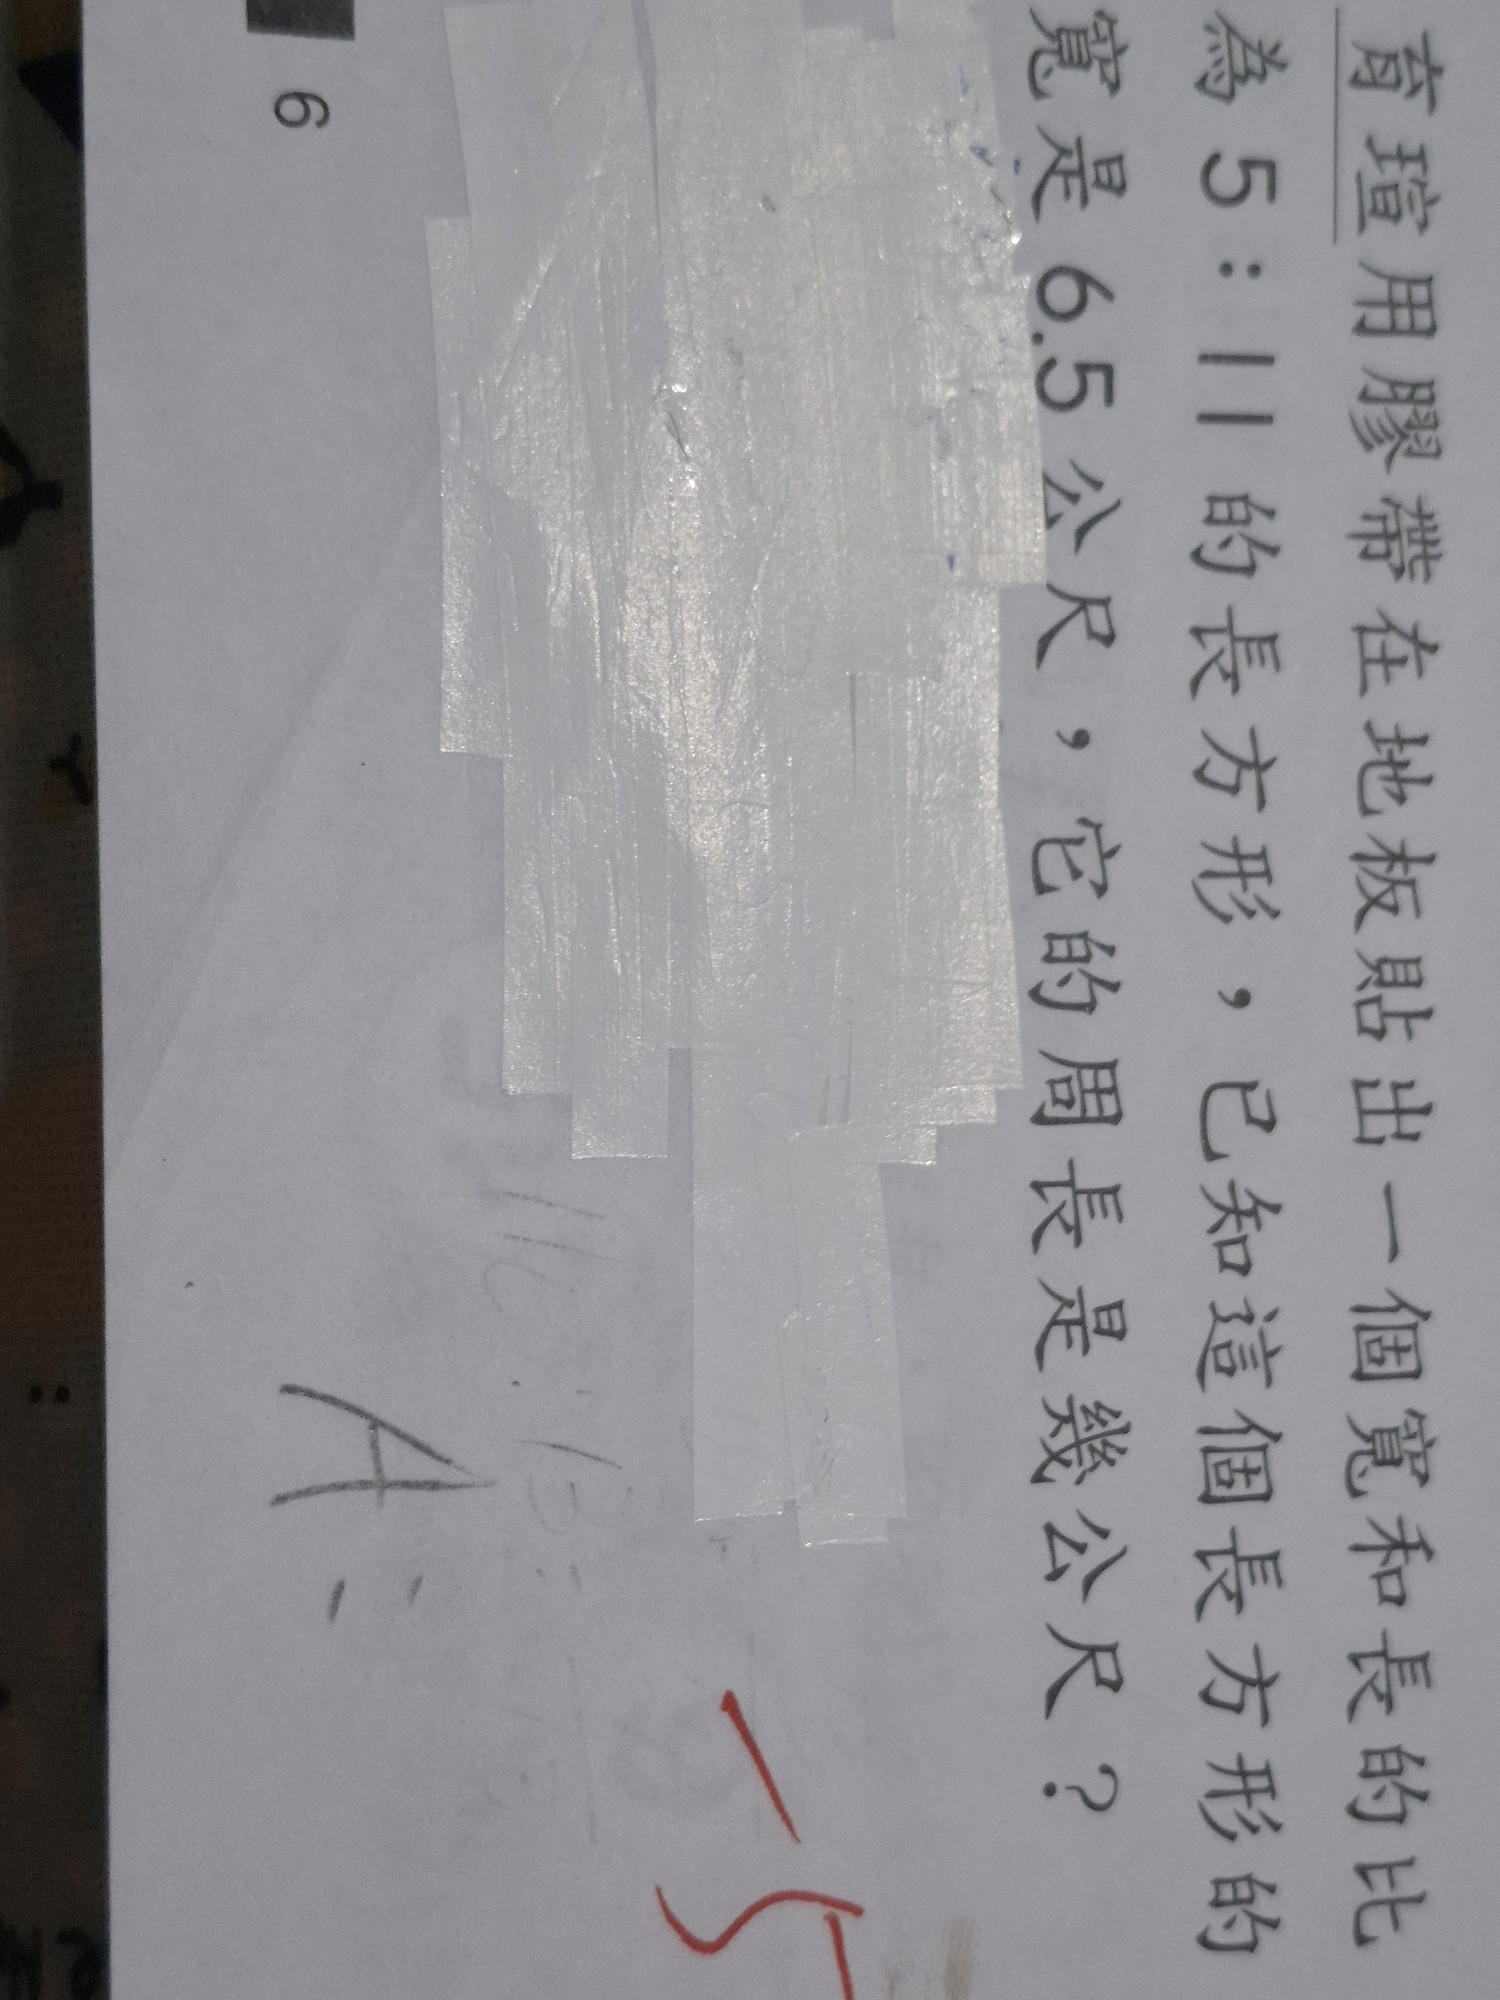 育瑄用膠帶在地板貼出一個寬和長的比
為5:11的長方形，已知這個長方形的
寬是6.5公尺，它的周長是幾公尺？
-5
A:
6